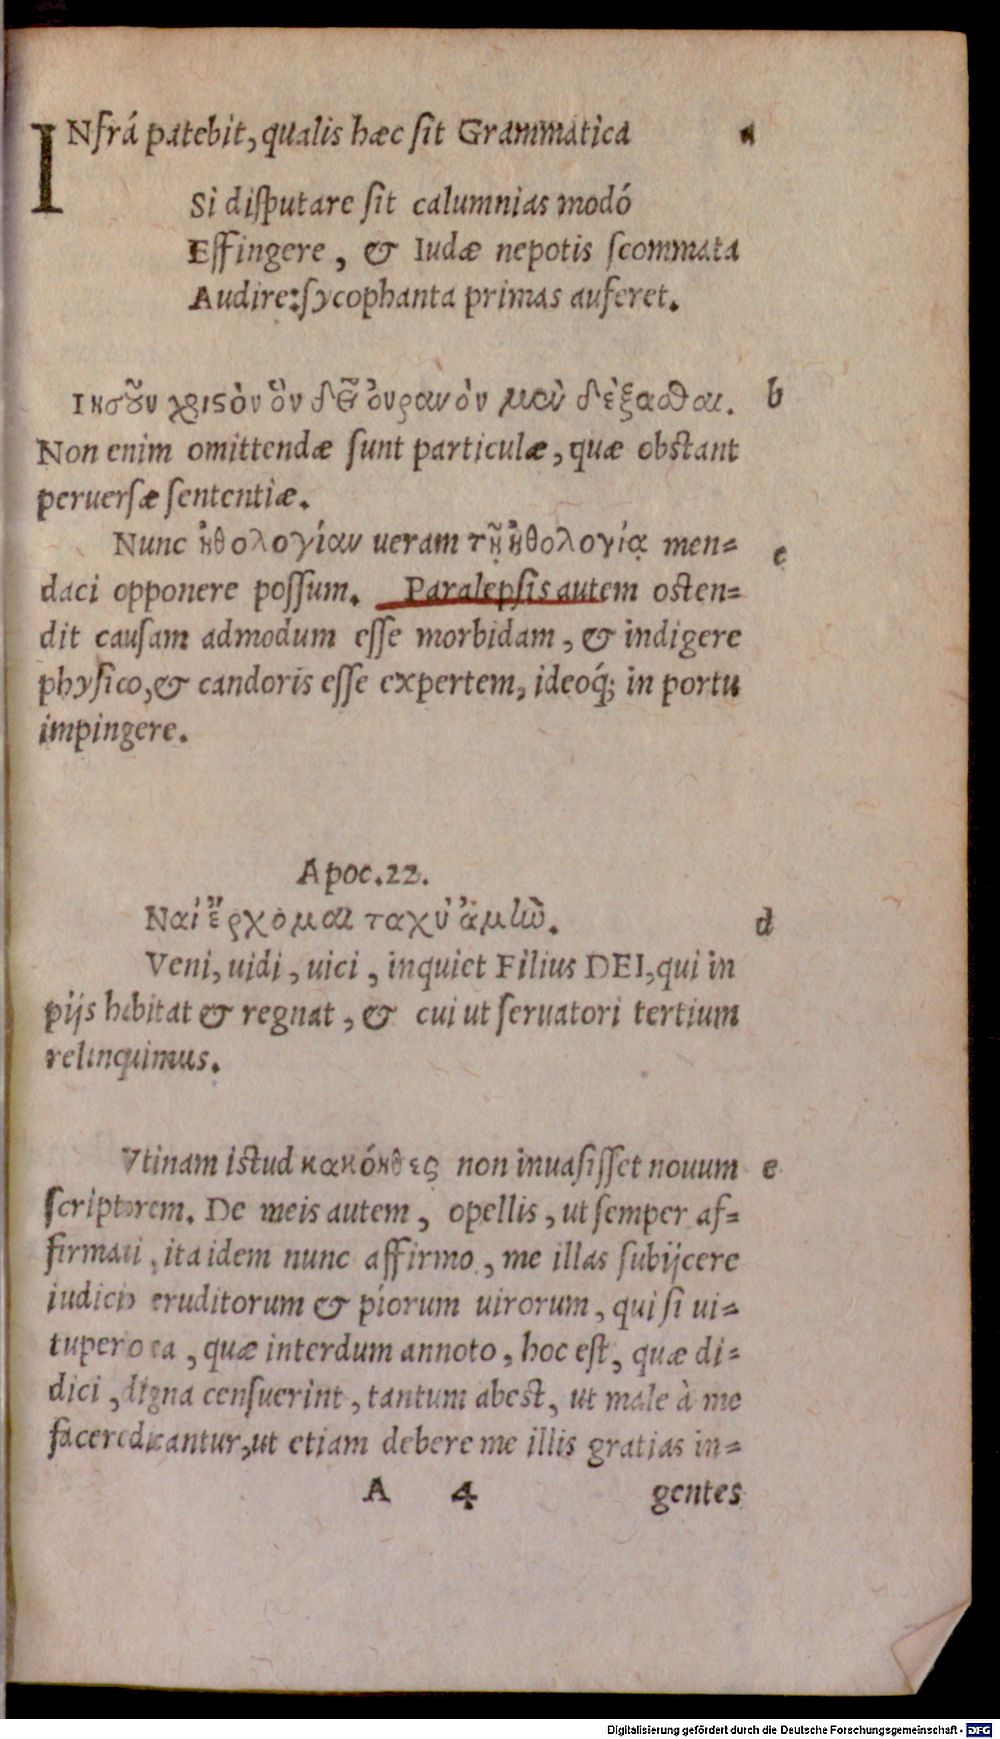 INfrá patebit, qualis hæc sit Grammatica a
Si disputare sit calumnias modó
Effingere, & Iudæ nepotis scommata
Audire: sycophanta primas auferet.
Ιησοῦν χριστὸν ὃν δεῖ ὀυρανὸν μὲν δέξασθαι. b
Non enim omittendæ sunt particulæ, quæ obstant
peruersæ sententiæ.
Nunc ἠθολογίαν ueram τῇ ἠθολογίᾳ men= c
daci opponere possum. Paralepsis autem osten=
dit causam admodum esse morbidam, & indigere
physico, & candoris esse expertem, ideoq́; in portu
impingere.
Apoc. 22.
Ναί ἔρχομαι ταχὺ ἀμὴν. d
Veni, uidi, uici, inquiet Filius DEI, qui in
pijs habitat & regnat, & cui ut seruatori tertium
relinquimus.
Vtinam istud κακόηθες non inuasisset nouum e
scriptorem. De meis autem, opellis, ut semper af=
firmaui, ita idem nunc affirmo, me illas subijcere
iudicio eruditorum & piorum uirorum, qui si ui=
tupero ea, quæ interdum annoto, hoc est, quæ di=
dici, digna censuerint, tantum abest, ut male à me
facere dicantur, ut etiam debere me illis gratias in=
A 4 gentes
Digitalisierung gefördert durch die Deutsche Forschungsgemeinschaft - DFG